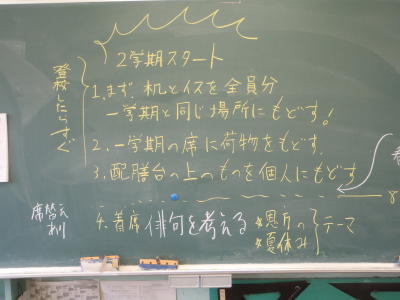 2学期スタート
登校したらすぐ
1.まず、机とイスを全員分
一学期と同じ場所にもどす!
2.一学期の席に荷物をもどす.
3.配膳台の上のものを個人にもどす
席替え
あり
4.着席 俳句を考える
*夏休み
テーマ
8